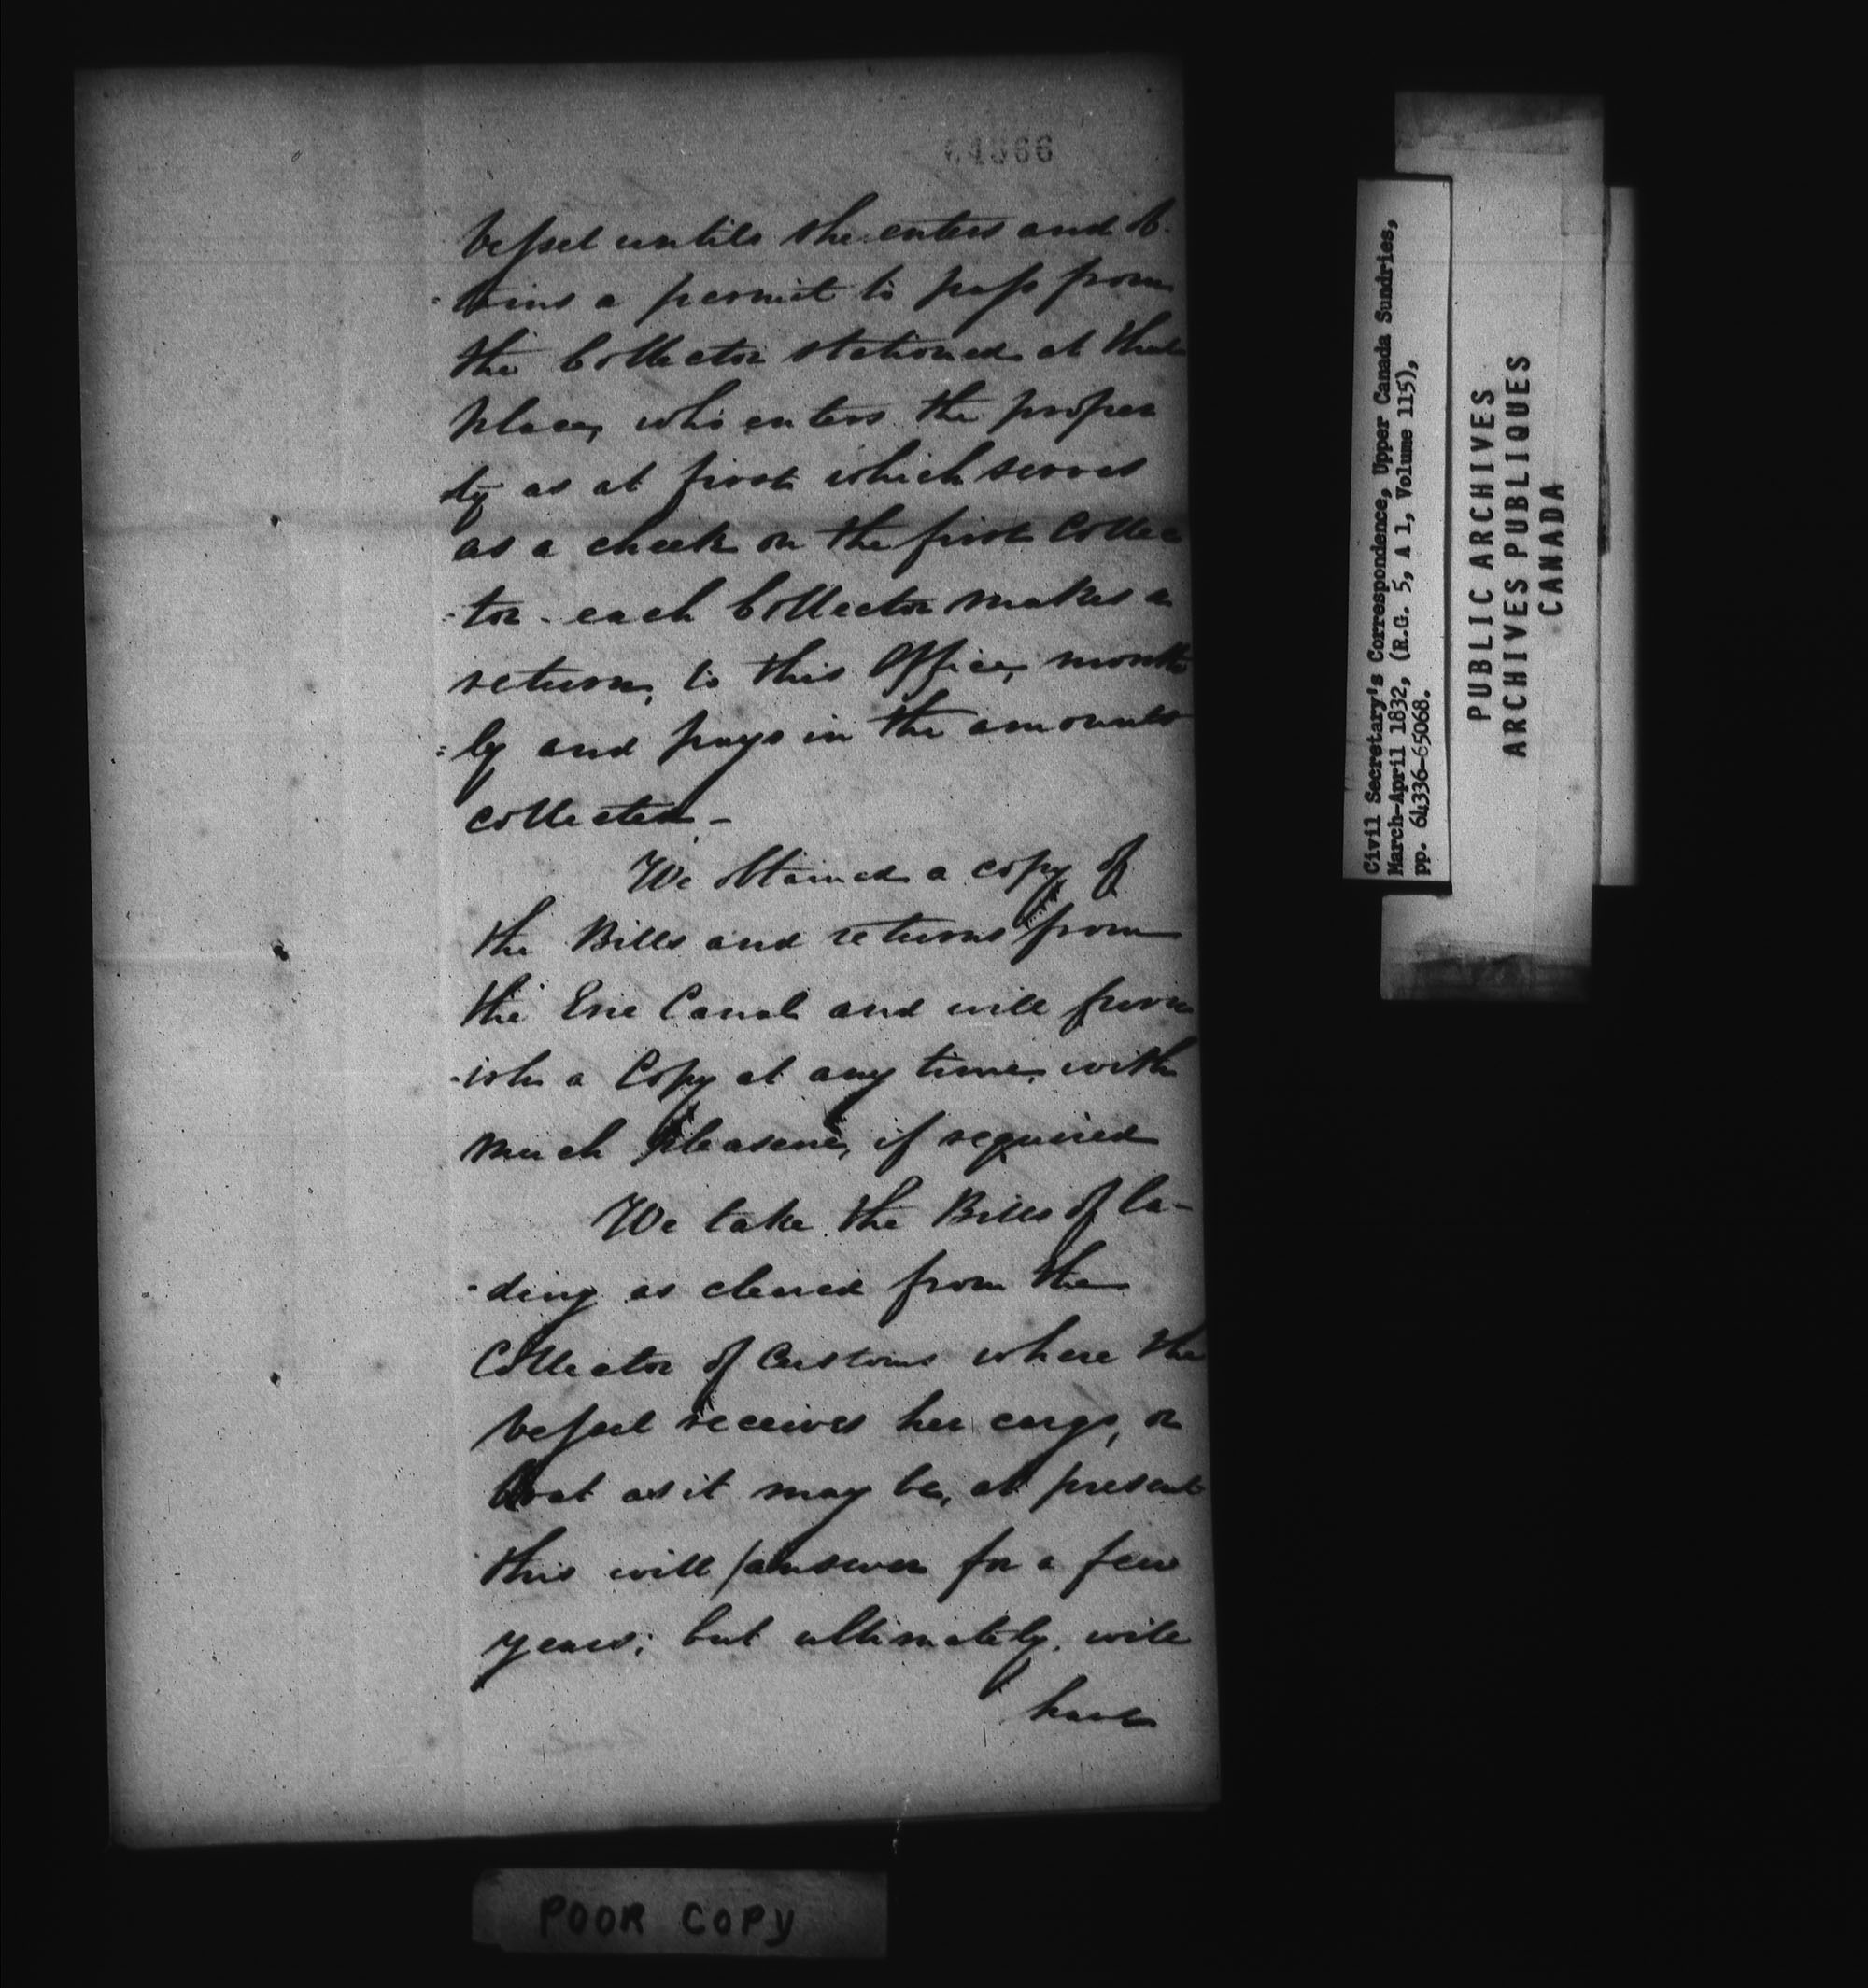 64866
Vessel untill she enters and ob-
-tains a permit to pass from
the Collector stationed at that
place, who enters the proper
ty as at first which serves
as a check on the first Collec
-tor - each Collector makes a
return, to this Office, month
=ly and pays in the amounts
collected -
We obtained a copy of
the Bills and returns from
the Erie Canal and will furn
-ish a Copy at any time, with
much pleasure, if required
We take the Bills of la-
-ding as cleared from the
Collector of Customs where the
Vessel receives her cargo, or
boat as it may be, at present
this will answer for a few
years; but ultimately, will
have
POOR COPY
Civil Secretary's Correspondence, Upper Canada Sundries,
March-April 1832, (R.G. 5, A 1, Volume 115),
pp. 64336-65068.
PUBLIC ARCHIVES
ARCHIVES PUBLIQUES
CANADA